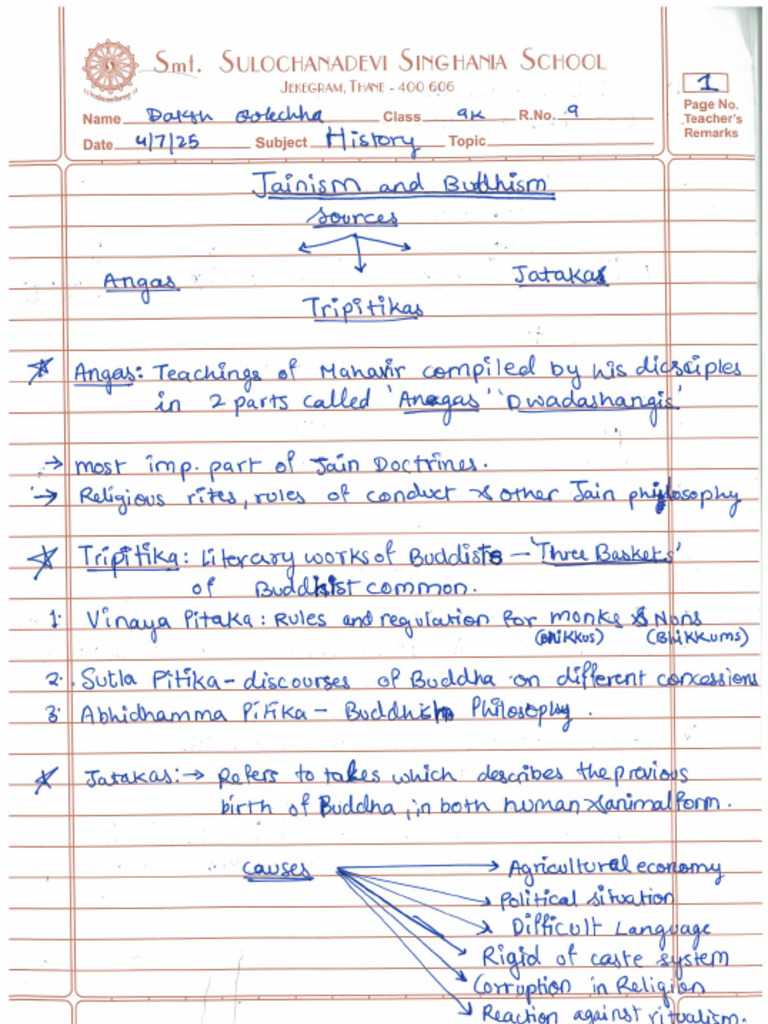 Smt. Sulochanadevi Singhania School
Jekegram, Thane - 400 606
1
Page No.
Teacher's
Remarks
Name Class 9K R.No. 9
Date 4/7/25 Subject History Topic
Jainism and Buddhism
Sources
Angas
Jatakas
Tripitikas
Angas: Teachings of Mahavir compiled by his dicsciples
in 2 parts called 'Anagas' 'Dwadashangis'
→ most imp. part of Jain Doctrines.
→ Religious rites, rules of conduct & other Jain philosophy
Tripitika: Literary works of Buddists – 'Three Baskets'
of Buddhist common.
1. Vinaya Pitaka: Rules and regulation for monks & Nuns
(Bhikkus) (Bhikkums)
2. Sutla Pitika – discourses of Buddha on different concessions
3. Abhidhamma Pitika – Buddhish Philosophy.
Jatakas: → Refers to takes which describes the previous
birth of Buddha, in both human & animal form.
causes
→ Agricultural economy
→ Political situation
→ Difficult Language
→ Rigid of caste system
→ Corruption in Religion
→ Reaction against ritualism.